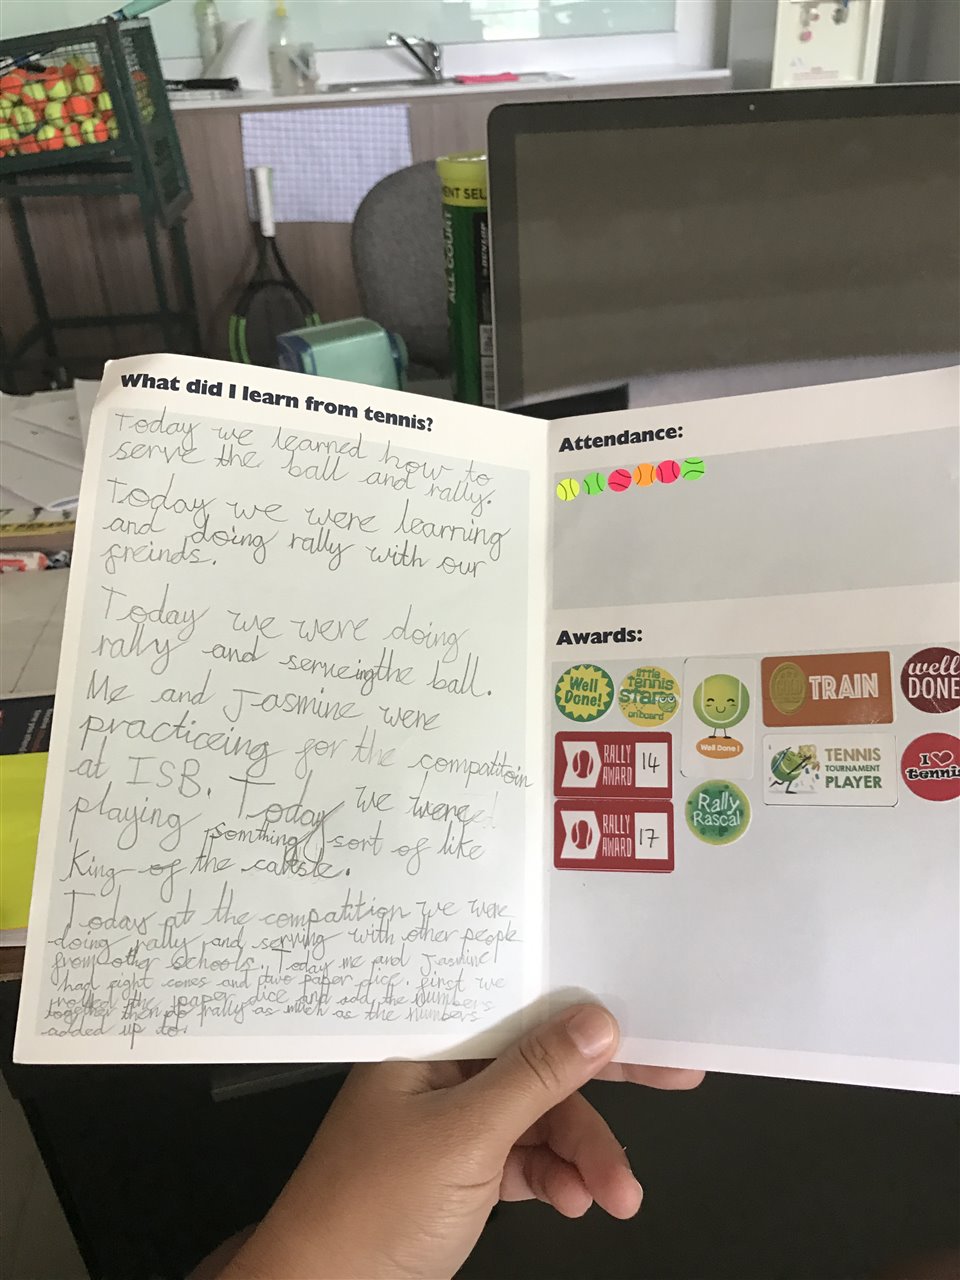 ENT SEL
ALL COURT
DUNLOP
What did I learn from tennis?
Today we learned how to
serve the ball and rally.
Today we were learning
and doing rally with our
freinds.
Today we were doing
rally and serveing the ball.
Me and Jasmine were
practiceing for the compatitoin
at ISB. Today we were
playing somthing sort of like
King of the
Today at the compatition we were
doing rally and serving with other people
from other schools. Today me and Jasmine
had eight cones and two paper dice. first we
rolled the paper dice and add the numbers
together then do rally as much as the numbers
added up to.
Attendance:
Awards:
Well
Done!
little
Tennis
Stars
on board
Well Done !
TRAIN
well
DONE
RALLY
AWARD
14
TENNIS
TOURNAMENT
PLAYER
I
tennis
RALLY
AWARD
17
Rally
Rascal